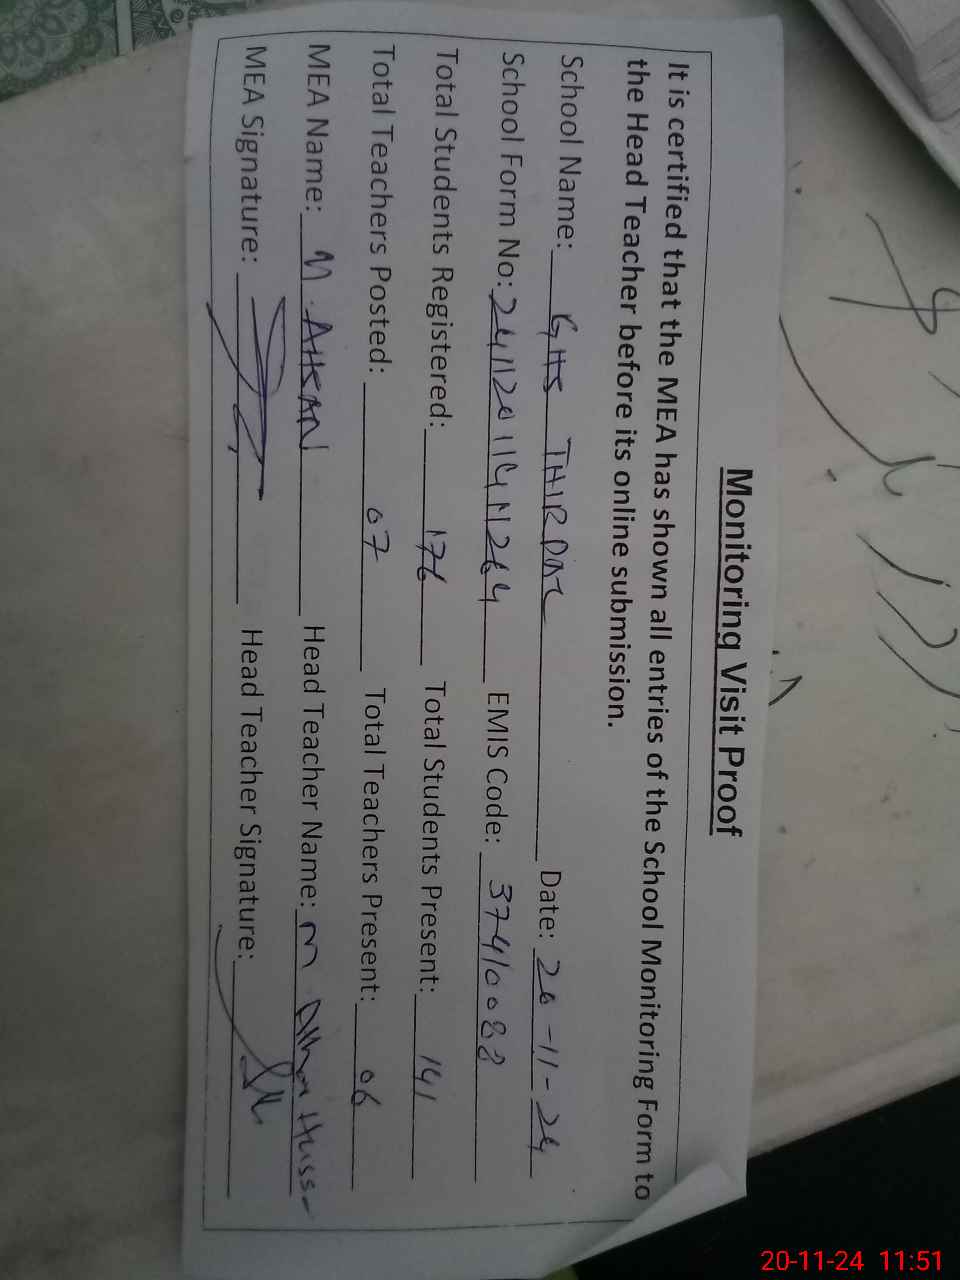 Monitoring Visit Proof
It is certified that the MEA has shown all entries of the School Monitoring Form to
the Head Teacher before its online submission.
School Name: GHS Date: 20-11-24
School Form No: EMIS Code: 37410088
Total Students Registered: 176 Total Students Present: 141
Total Teachers Posted: 07 Total Teachers Present: 06
MEA Name: M. AHSAN Head Teacher Name: M
MEA Signature: Head Teacher Signature:
20-11-24 11:51